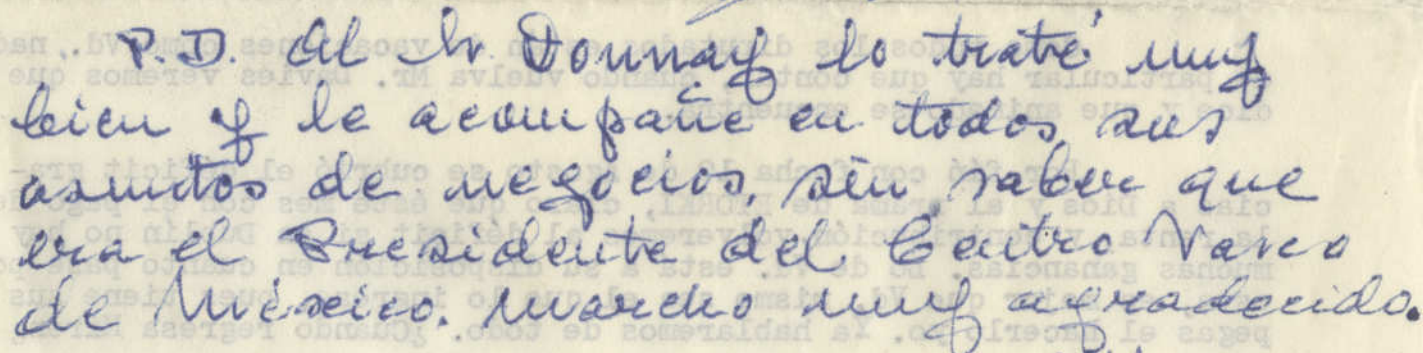 P.D. Al Sr Donnay lo traté muy
bien y le acompañe en todos sus
asuntos de negocios, sin saber que
era el Presidente del Centro Vasco
de México. Marcho muy agradecido.